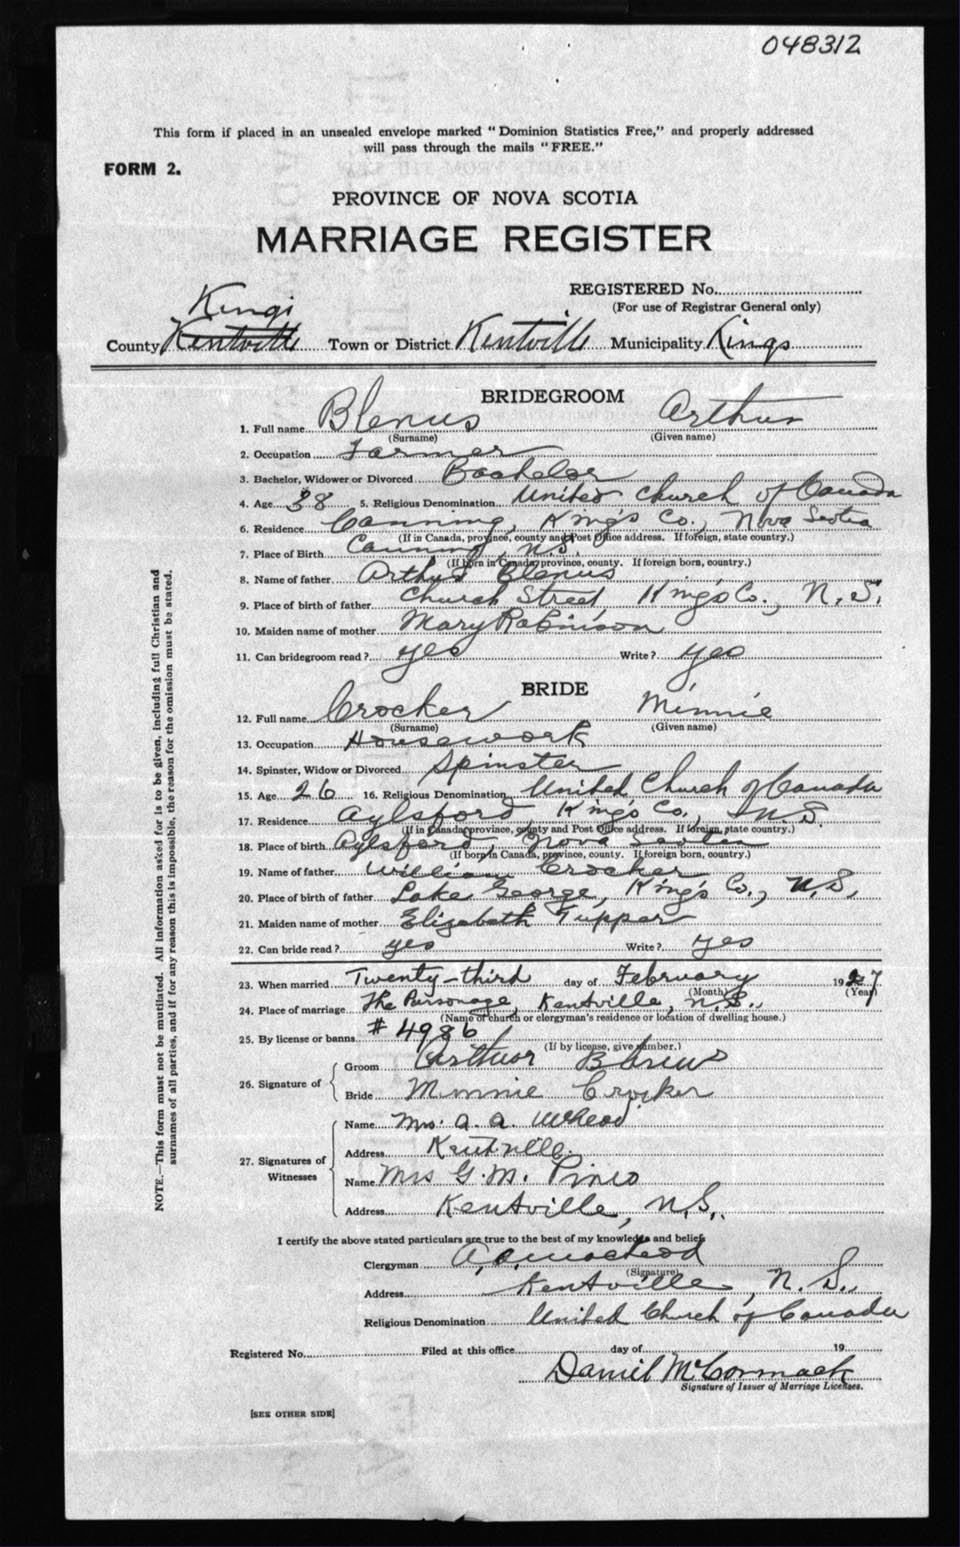 048312
This form if placed in an unsealed envelope marked "Dominion Statistics Free," and properly addressed
will pass through the mails "FREE."
FORM 2.
PROVINCE OF NOVA SCOTIA
MARRIAGE REGISTER
REGISTERED No.
(For use of Registrar General only)
Kings
County Kentville Town or District Kentville Municipality Kings
BRIDEGROOM
1. Full name Blenus Arthur
(Surname) (Given name)
2. Occupation Farmer
3. Bachelor, Widower or Divorced Bachelor
4. Age 38 5. Religious Denomination United Church of Canada
6. Residence Canning, King's Co., Nova Scotia
(If in Canada, province, county and Post Office address. If foreign, state country.)
7. Place of Birth Canning, N.S.
(If born in Canada, province, county. If foreign born, country.)
8. Name of father Arthur Blenus
9. Place of birth of father Church Street, King's Co., N.S.
10. Maiden name of mother Mary Robinson
11. Can bridegroom read? yes Write? yes
BRIDE
12. Full name Crocker Minnie
(Surname) (Given name)
13. Occupation Housework
14. Spinster, Widow or Divorced Spinster
15. Age 26 16. Religious Denomination United Church of Canada
17. Residence Aylsford, King's Co., N.S.
(If in Canada, province, county and Post Office address. If foreign, state country.)
18. Place of birth Aylsford, Nova Scotia
(If born in Canada, province, county. If foreign born, country.)
19. Name of father William Crocker
20. Place of birth of father Lake George, King's Co., N.S.
21. Maiden name of mother Elizabeth Tupper
22. Can bride read? yes Write? yes
23. When married Twenty-third day of February 1927
(Month) (Year)
24. Place of marriage The Parsonage, Kentville, N.S.
(Name of church or clergyman's residence or location of dwelling house.)
25. By license or banns # 4986
(If by license, give number.)
26. Signature of Groom Arthur Blenus
Bride Minnie Crocker
27. Signatures of Witnesses
Name Mrs. A. A.
Address Kentville.
Name Mrs G. M. Pineo
Address Kentville, N.S.
I certify the above stated particulars are true to the best of my knowledge and belief.
Clergyman A. A. MacLeod
(Signature)
Address Kentville, N.S.
Religious Denomination United Church of Canada
Registered No. Filed at this office day of 19
Daniel McCormack
Signature of Issuer of Marriage Licenses.
[SEE OTHER SIDE]
NOTE.—This form must not be mutilated. All information asked for is to be given, including full Christian and
surnames of all parties, and if for any reason this is impossible, the reason for the omission must be stated.